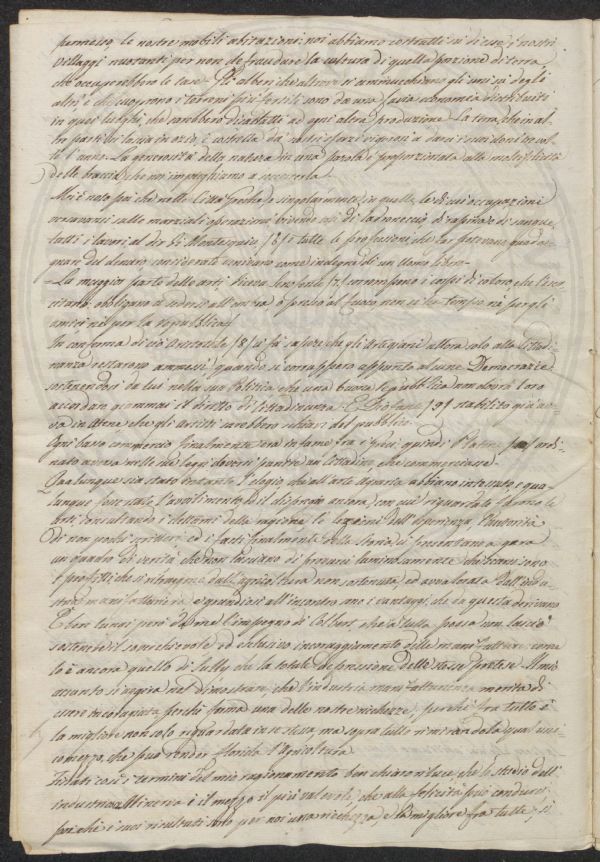 permesso le nostre mobili abitazioni; noi abbiamo costrutti si stesi, i nostri
villaggi nuotanti per non defraudare la coltura di quella porzione di terra,
che occuperebbero le case. Gli alberi che altrove si ammucchiano gli uni su degli
altri e che cuoprono i terreni più fertili sono da una savia economia distribuiti
in quei luoghi che sarebbero disadatti ad ogni altra produzione. La terra, che in al-
tre parti si lascia in ozio, è costretta da nostri sforzi vigorosi a darci ricci doni tre vol-
te l'anno. La generosità della natura in una parola è proporzionata alla moltiplicità
delle braccia, che noi impieghiamo a secondarla.
Mi è noto poi che nelle Città Greche, e singolarmente in quelle, le di cui occupazioni
versavansi sulle marziali operazioni vivendo esse di saccheggio di rapina e di sangue,
tutti i lavori al dir di Montesquieu (6) e tutte le professioni, che far potevano guada-
gnare del denaro considerate venivano come indegne di un Uomo libero.
La maggior parte delle arti, diceva Senofonte (7) corrompono i corpi di coloro che l'eser-
citano, obbligano a sedersi all'ombra, o presso al fuoco non si ha tempo nè per gli
amici nè per la repubblica.
In conferma di ciò Aristotile (8) ci fa sapere, che gli Artigiani allora solo alla Cittadi-
nanza restarono ammessi, quando si corruppero appunto alcune Democrazie
sostenendosi da lui nella sua Politica che una buona Repubblica non dovrà loro
accordare giammai il diritto di Cittadinanza. E Diofante (9) stabilito già ave-
va in Atene, che gli Artisti sarebbero schiavi del pubblico.
Ogni basso commercio finalmente era infame fra i Greci, quindi Platone ordi-
nato aveva nelle sue leggi doversi punire un Cittadino, che commerciasse.
Qualunque sia stato pertanto l'elogio che all'arte Agraria abbiano intessuto, e qua-
lunque pure stato l'avvilimento ed il disprezzo ancora, con cui riguardate furono le
Arti, consultando i dettami della ragione, le lezioni dell'esperienza, l'autorità
di non pochi scrittori, ed i fatti finalmente della storia, si presentano a gara
un quadro di verità che non lasciano di provarci luminosamente che scarsi sono
i profitti, che si ritraggono dall'agricoltura non sostenuta, ed avvalorata dall'indu-
stria manifatturiera, e grandiosi all'incontro sono i vantaggi, che da questa derivano.
Eben lungi però di sorte l'impegno di Colbert, che in tutto posso non lasciò
sostenere il sonnichevole ed esclusivo incoraggiamento delle manifatture, come
lo è ancora quello di Sully, che la totale depressione delle stesse protesse. Il mio
assunto si aggira nel dimostrare, che l'industria manifatturiera merita di
essere incoraggiata perchè forma una delle nostre ricchezze, perchè fra tutte è
la migliore non solo riguardata in se stessa, ma sopra tutto rimirandola qual uni-
co mezzo, che può render florida l'Agricoltura.
Fissati così i termini del mio ragionamento ben chiaro riluce, che lo studio dell'
industria Minerva è il mezzo il più valevole, che alla felicità può condurci,
poichè i suoi risultati sono per noi una ricchezza, e la migliore fra tutte; si